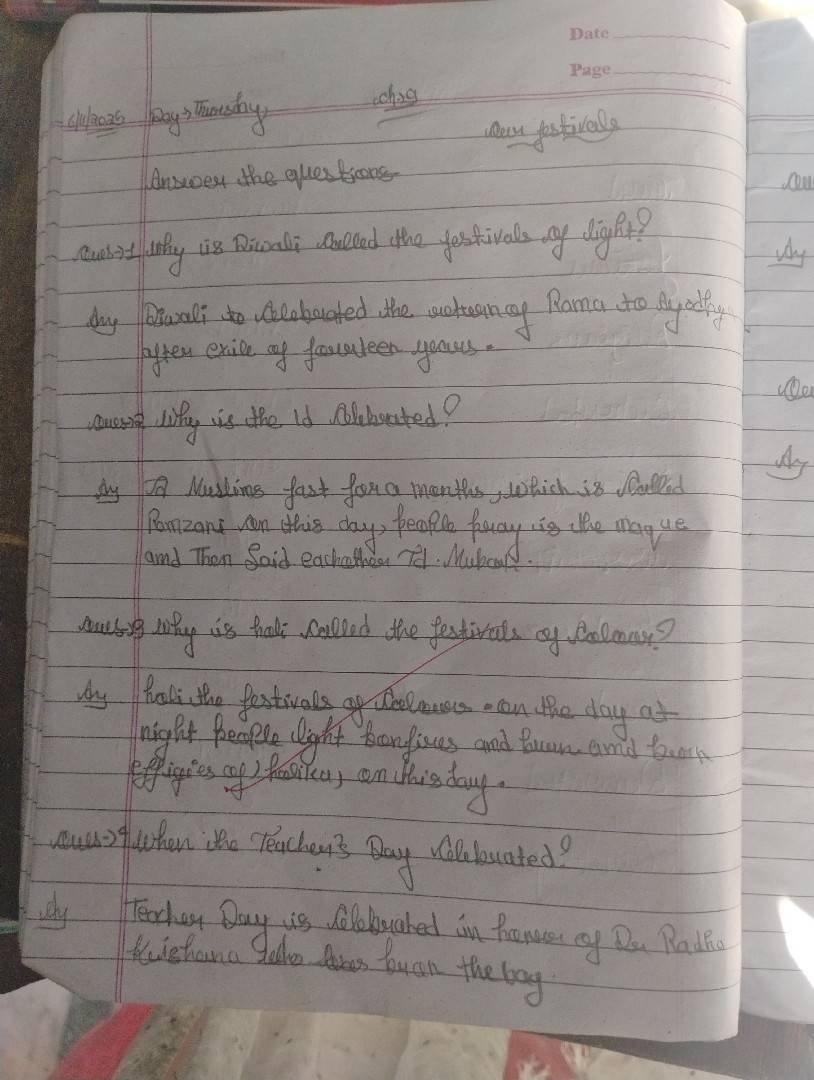 Date
Page
6/11/2025 Day→Thursday ch→9
Our festivals
Answer the questions
Ques→1 Why is Diwali Called the festivals of light?
Ans Diwali to Celebrated the return of Rama to Ayodhy
after exile of fourteen years.
Ques→2 Why is the Id Celebrated?
Ans A Muslims fast for a months, which is Called
Ramzani on this day, people pray is the maque
amd Then Said eachother Id. Mubark.
Ques→3 Why is holi Called the festivals of Colour?
Ans holi the festivals of Coloures on the day at
night people light bonfires and burn amd burn
effigies of holika, on this day.
Ques→4 When the Teacher's Day Celebrated?
Ans Teacher Day is Celebrated in honour of Dr Radha
Krishana born the bag.